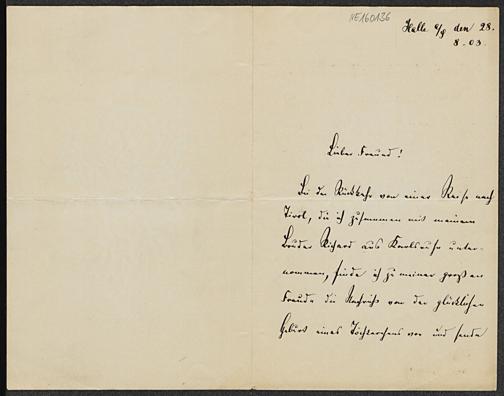 NE160136
Halle a/S den 28.
8.03.
Lieber Freund!
Bei der Rückkehr von einer Reise nach
Tirol, die ich zusammen mit meinem
Bruder Richard aus Karlsruhe unter-
nommen, finde ich zu meiner großen
Freude die Nachricht von der glücklichen
Geburt eines Töchterchens vor und sende